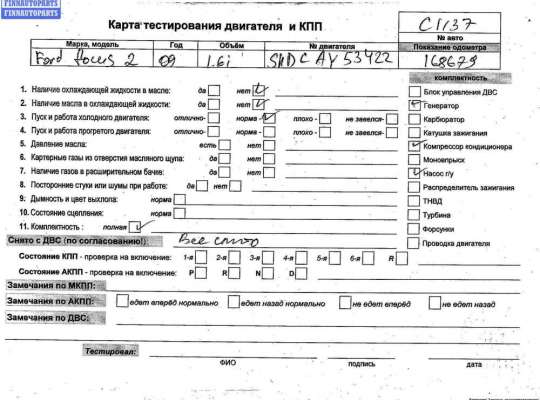 FINNAUTOPARTS
FINNAUTOPARTS
Карта тестирования двигателя и КПП
С1137
№ авто
Марка, модель Год Объём № двигателя Показание одометра
Ford focus 2 09 1.6i SHDC AY 53422 168679
комплектность
1. Наличие охлаждающей жидкости в масле: да нет
2. Наличие масла в охлаждающей жидкости: да нет
3. Пуск и работа холодного двигателя: отлично- норма- плохо - не завелся-
4. Пуск и работа прогретого двигателя: отлично- норма- плохо - не завелся-
5. Давление масла: есть нет
6. Картерные газы из отверстия масляного щупа: да нет
7. Наличие газов в расширительном бачке: да нет
8. Посторонние стуки или шумы при работе: да нет
9. Дымность и цвет выхлопа: норма
10. Состояние сцепления: норма
11. Комплектность : полная
Блок управления ДВС
Генератор
Карбюратор
Катушка зажигания
Компрессор кондиционера
Моновпрыск
Насос г/у
Распределитель зажигания
ТНВД
Турбина
Форсунки
Проводка двигателя
Снято с ДВС (по согласованию!): Все снято
Состояние КПП - проверка на включение: 1-я 2-я 3-я 4-я 5-я 6-я R
Состояние АКПП - проверка на включение: P R N D
Замечания по МКПП:
Замечания по АКПП: едет вперёд нормально едет назад нормально не едет вперёд не едет назад
Замечания по ДВС:
Тестировал:
ФИО подпись дата